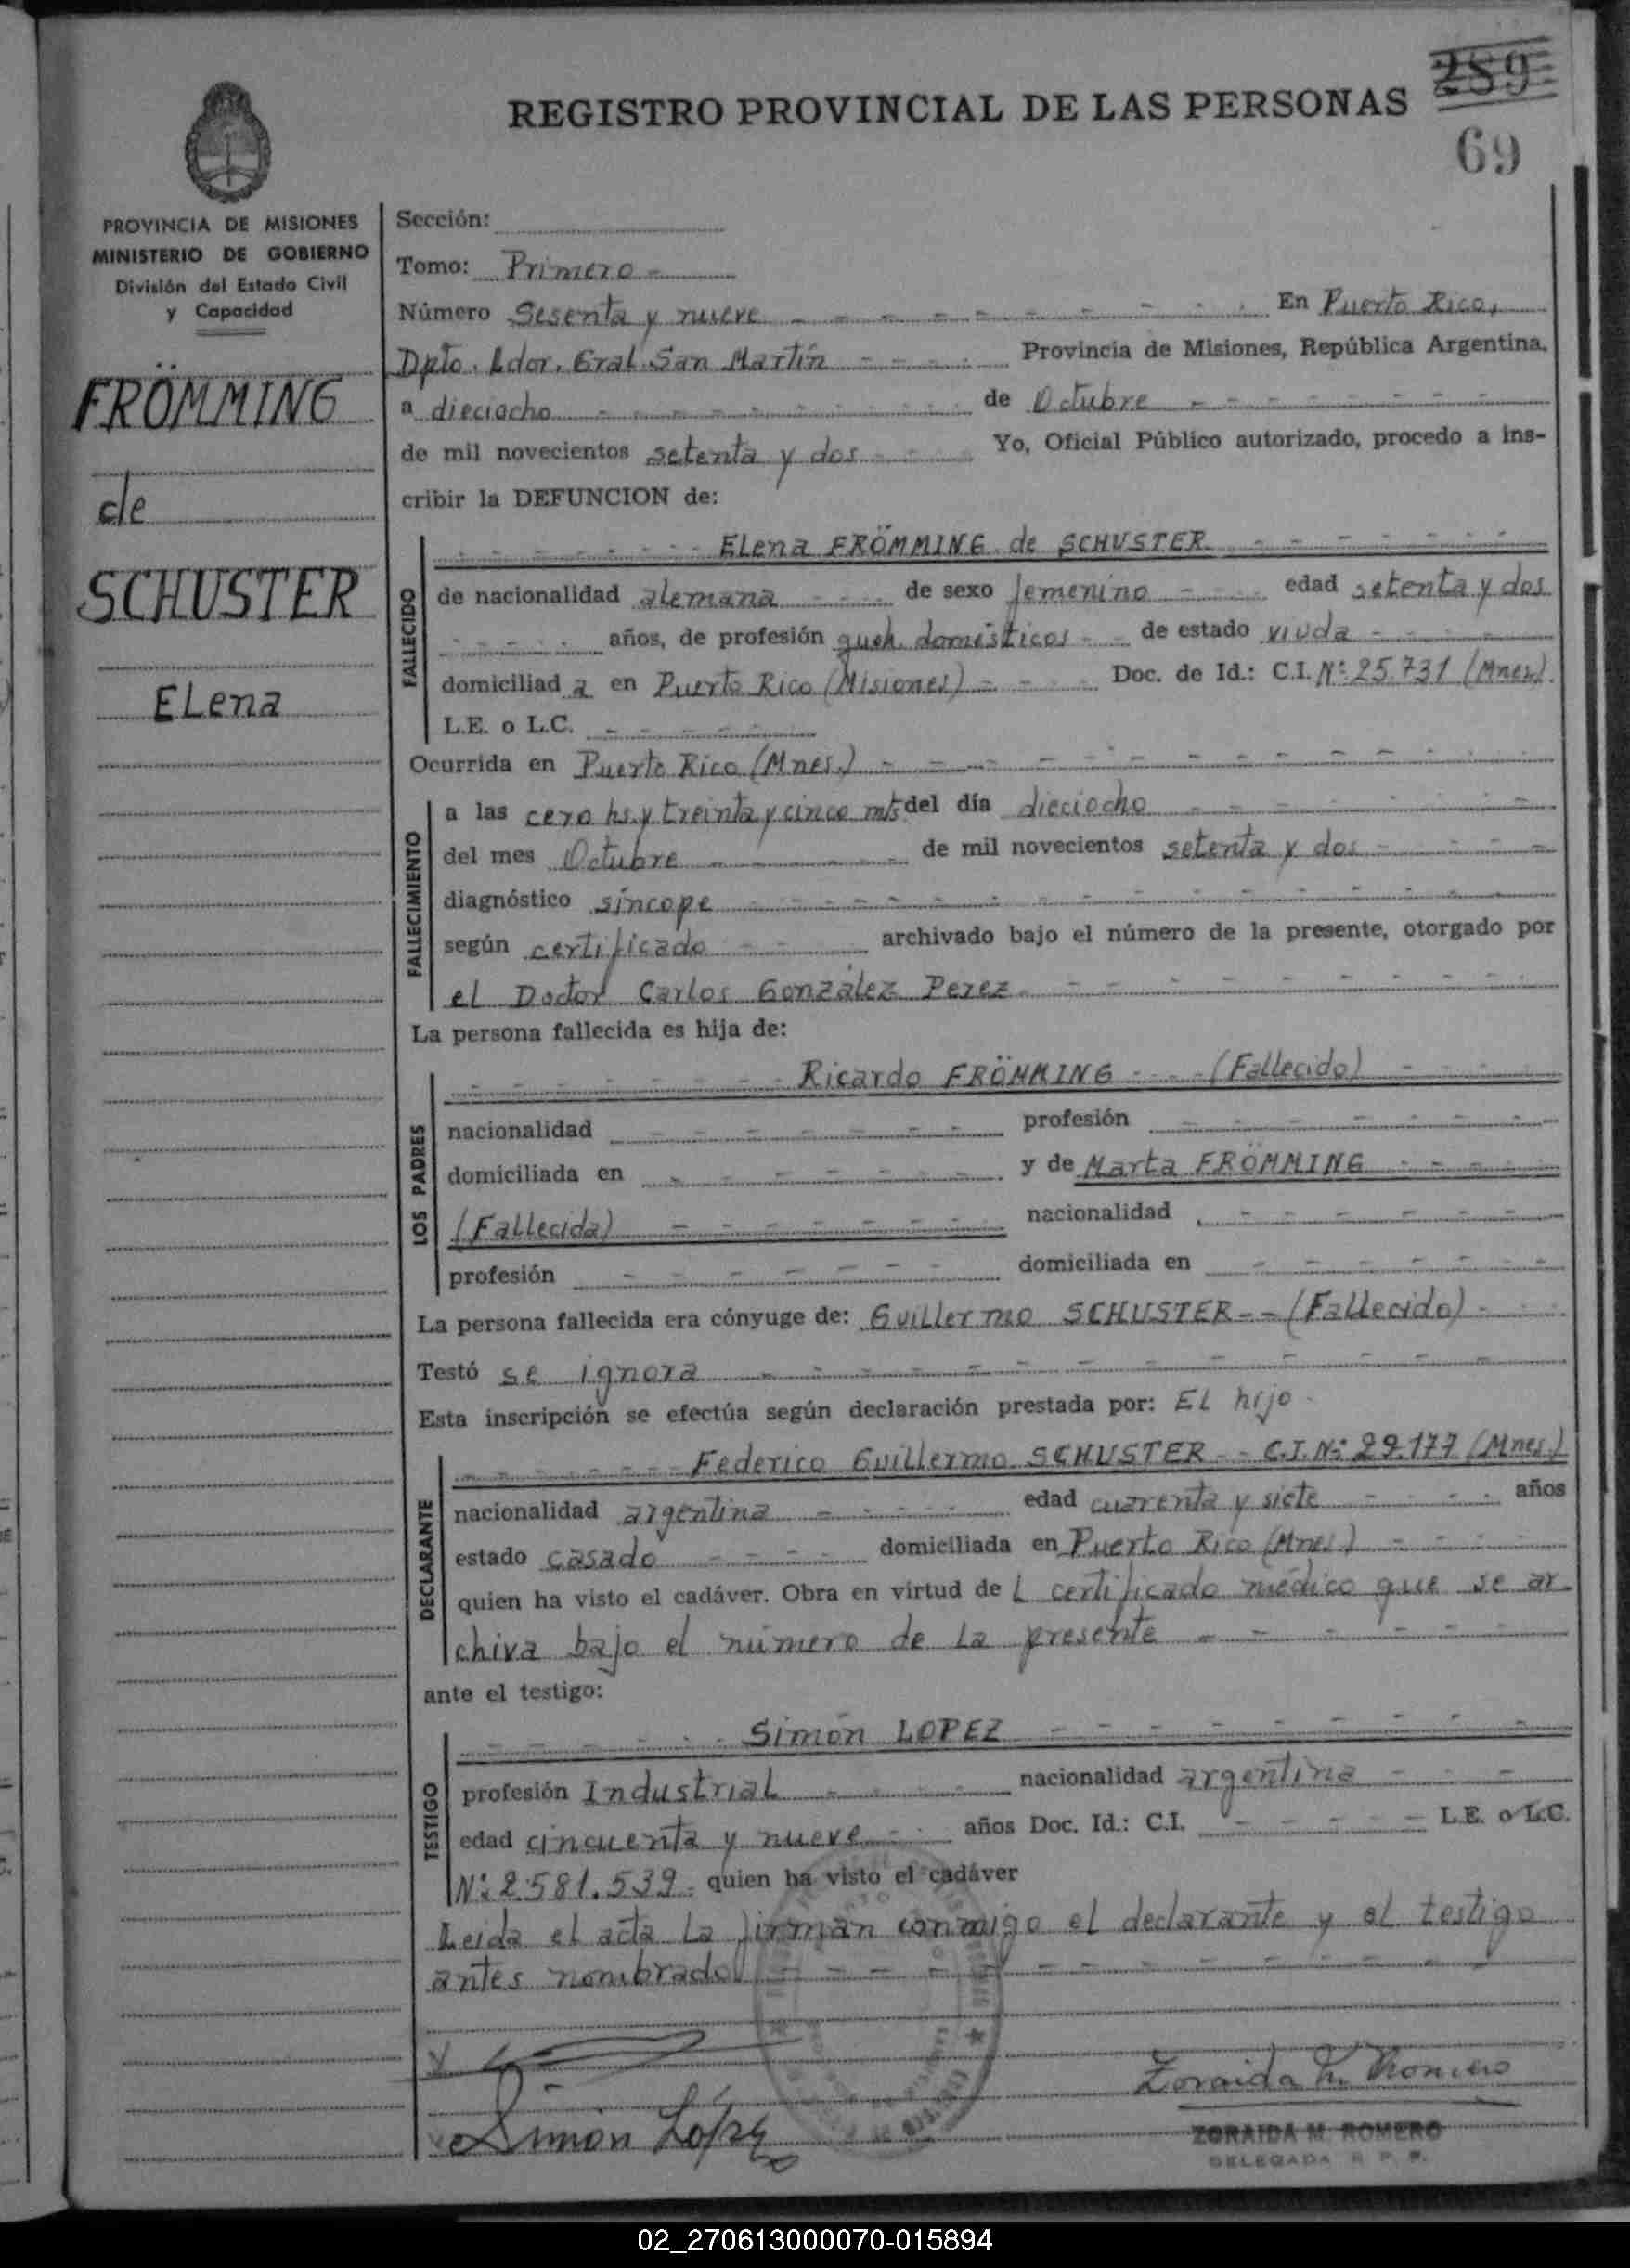 289
REGISTRO PROVINCIAL DE LAS PERSONAS
69
PROVINCIA DE MISIONES
MINISTERIO DE GOBIERNO
División del Estado Civil
y Capacidad
FRÖMMING
de
SCHUSTER
ELena
Sección:
Tomo: Primero -
Número Sesenta y nueve - - - En Puerto Rico,
Dpto. Ldor. Gral. San Martín - - - Provincia de Misiones, República Argentina,
a dieciocho - - - de Octubre - - -
de mil novecientos setenta y dos - - - Yo, Oficial Público autorizado, procedo a ins-
cribir la DEFUNCION de:
FALLECIDO
- - - ELena FRÖMMING de SCHUSTER - - -
de nacionalidad alemana - - - de sexo femenino - - - edad setenta y dos
- - - años, de profesión queh. domésticos - - de estado viuda - - -
domiciliad a en Puerto Rico (Misiones) - - - Doc. de Id.: C.I. Nº 25.731 (Mnes).
L.E. o L.C. - - -
Ocurrida en Puerto Rico (Mnes.) - - -
FALLECIMIENTO
a las cero hs. y treinta y cinco mts del día dieciocho - - -
del mes Octubre - - - de mil novecientos setenta y dos - - -
diagnóstico síncope - - -
según certificado - - archivado bajo el número de la presente, otorgado por
el Doctor Carlos González Perez - - -
La persona fallecida es hija de:
LOS PADRES
- - - Ricardo FRÖMMING - - - (Fallecido) - - -
nacionalidad - - - profesión - - -
domiciliada en - - - y de Marta FRÖMMING - - -
(Fallecida) - - - nacionalidad - - -
profesión - - - domiciliada en - - -
La persona fallecida era cónyuge de: Guillermo SCHUSTER - - (Fallecido) -
Testó se ignora - - -
Esta inscripción se efectúa según declaración prestada por: El hijo -
DECLARANTE
- - - Federico Guillermo SCHUSTER - - C.I. Nº 29.177 (Mnes.)
nacionalidad argentina - - - edad cuarenta y siete - - - años
estado casado - - - domiciliada en Puerto Rico (Mnes.) - - -
quien ha visto el cadáver. Obra en virtud de L certificado médico que se ar-
chiva bajo el número de La presente - - -
ante el testigo:
TESTIGO
- - - Simón LOPEZ - - -
profesión Industrial - - - nacionalidad argentina - - -
edad cincuenta y nueve - - años Doc. Id.: C.I. - - - L.E. o L.C.
Nº 2.581.539 - quien ha visto el cadáver
Leida el acta La firman conmigo el declarante y el testigo
antes nombrado - - -
Simón López
Zoraida M. Romero
ZORAIDA M. ROMERO
DELEGADA R. P. P.
02_270613000070-015894